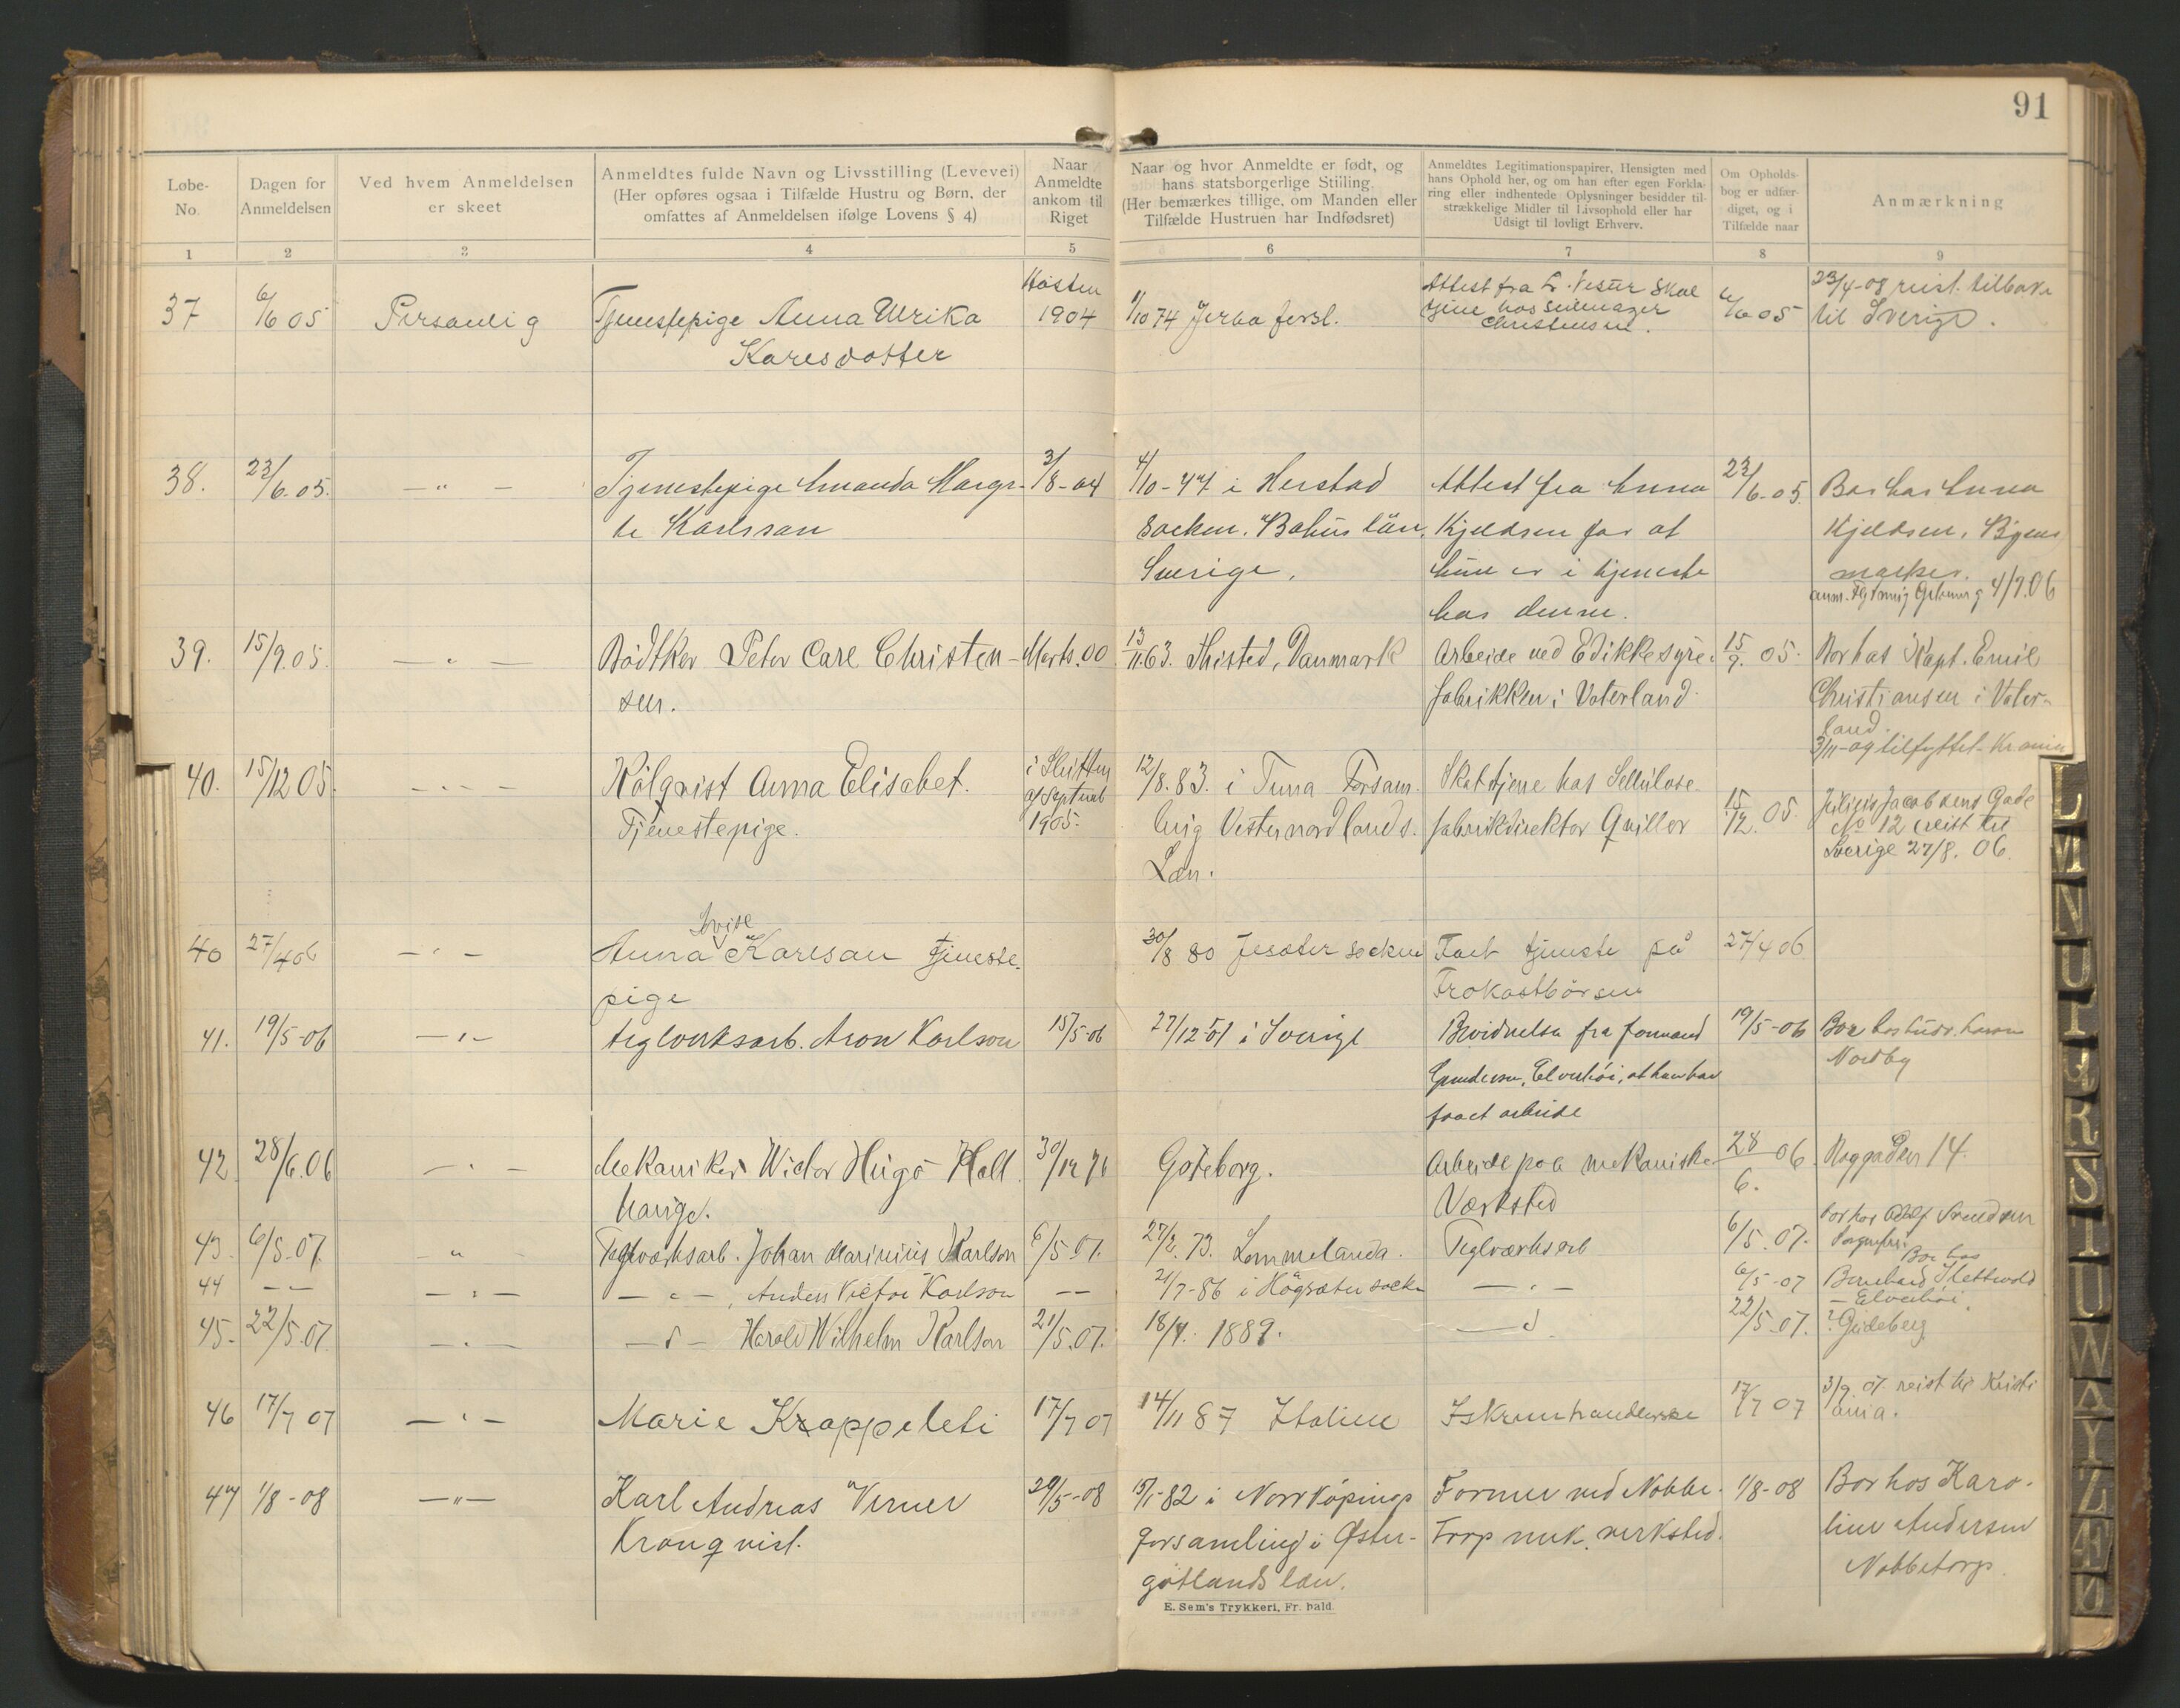 91
Løbe-
No.
Dagen for
Anmeldelsen
Ved hvem Anmeldelsen
er skeet
Anmeldtes fulde Navn og Livsstilling (Levevei)
(Her opføres ogsaa i Tilfælde Hustru og Børn, der
omfattes af Anmeldelsen ifølge Lovens § 4)
Naar
Anmeldte
ankom til
Riget
Naar og hvor Anmeldte er født, og
hans statsborgerlige Stiiling
(Her bemærkes tillige, om Manden eller
Tilfælde Hustruen har Indfødsret)
Anmeldtes Legitimationspapirer, Hensigten med
hans Ophold her, og om han efter egen Forkla-
ring eller indhentede Oplysninger besidder til-
strækkelige Midler til Livsophold eller har
Udsigt til lovligt Erhverv.
Om Opholds-
bog er udfær-
diget, og i
Tilfælde naar
Anmærkning
1
2
3
4
5
6
7
8
9
37
6/6 05
Personlig
Tjenestepige Anna Ulrika
Karlsdotter
Høsten
1904
1/10 74
Attest fra
tjene hos
Christensen.
6/6 05
23/4-08 reist tilbake
til Sverige.
38.
23/6.05.
— " —
Tjenestepige Amanda Margre-
te Karlsson
3/8-04
4/10-47 i Herstad
Socken. Bohus län,
Sverige.
Attest fra Anna
Kjeldsen for at
hun er i tjeneste
hos denne.
23/6-05.
Bor hos Anna
Kjeldsen, Byens
marker.
4/7.06
39.
15/9.05.
— " —
Bödtker Peter Carl Christen-
sen.
Marts.00
13/11.63. Thisted, Danmark
Arbeide ved Edikkesyre-
fabrikken i Vaterland.
15/9. 05.
Bor hos Kapt. Emil
Christiansen i Vater-
land.
3/11-09 tilflyttet Krania
40.
15/12 05.
— " —
Kölqvist Anna Elisabet.
Tjenestepige.
i Slutten
af Septemb
1905.
12/8.83. i Tuna Forsam-
ling Vesternorrlands.
Län.
Skal tjene hos Sellulose-
fabrikdirektør Qviller
15/12. 05.
Julius Jacobsens Gade
No 12 reist til
Sverige 27/8. 06.
40
27/4 06
— " —
Anna Karlsan tjeneste-
pige
30/8 80 socken
Faet tjeneste på
Frokostbørsen
27/4 06
41.
19/5-06
— " —
teglverksarb. Aron Karlson
15/5-06
27/12-51 i Sverige
Bevidnelse fra formand
Gundersen, Elverhöi, at han har
faaet arbeide
19/5-06
Bor hos
Nordby
42
28/6.06
— " —
Mekaniker Wictor Hugo Hall
30/12 76
Gøteborg.
Arbeide paa mekaniske
Værksted
28/6. 06.
14.
43.
6/5-07.
— " —
Teglværksarb. Johan Marinius Karlson
6/5 07.
27/2. 73. Lommelanda.
Teglværksarb
6/5.07.
Bor hos Adolf
44
— —
— " —
— " —, Anders Victor Karlson
— —
21/7-86 i socken
— " —
6/5-07
Bor hos
Bernhard
Elverhöi.
45.
22/5.07.
— " —
— d — Harald Wilhelm Karlson
21/5.07.
18/4. 1889.
— d
22/5-07.
46
17/7 07
— " —
Marie Krappeleti
17/7 07
14/11 87 Italien
Iskremhandlerske
17/7 07
3/9 07 reist til Kristi
ania.
47
1/8-08
— " —
Karl Andreas Verner
Kronqvist.
29/5-08
15/1-82 i Norrköpings
forsamling i Øster-
götlands län.
Former ved Nabbe-
Torp mek. verksted.
1/8-08
Bor hos Karo-
line Andersen
Nabbetorp.
E. Sem's Trykkeri, Fr. hald.
L
M
N
U
R
S
T
U
W
Y
Z
Æ
Ø